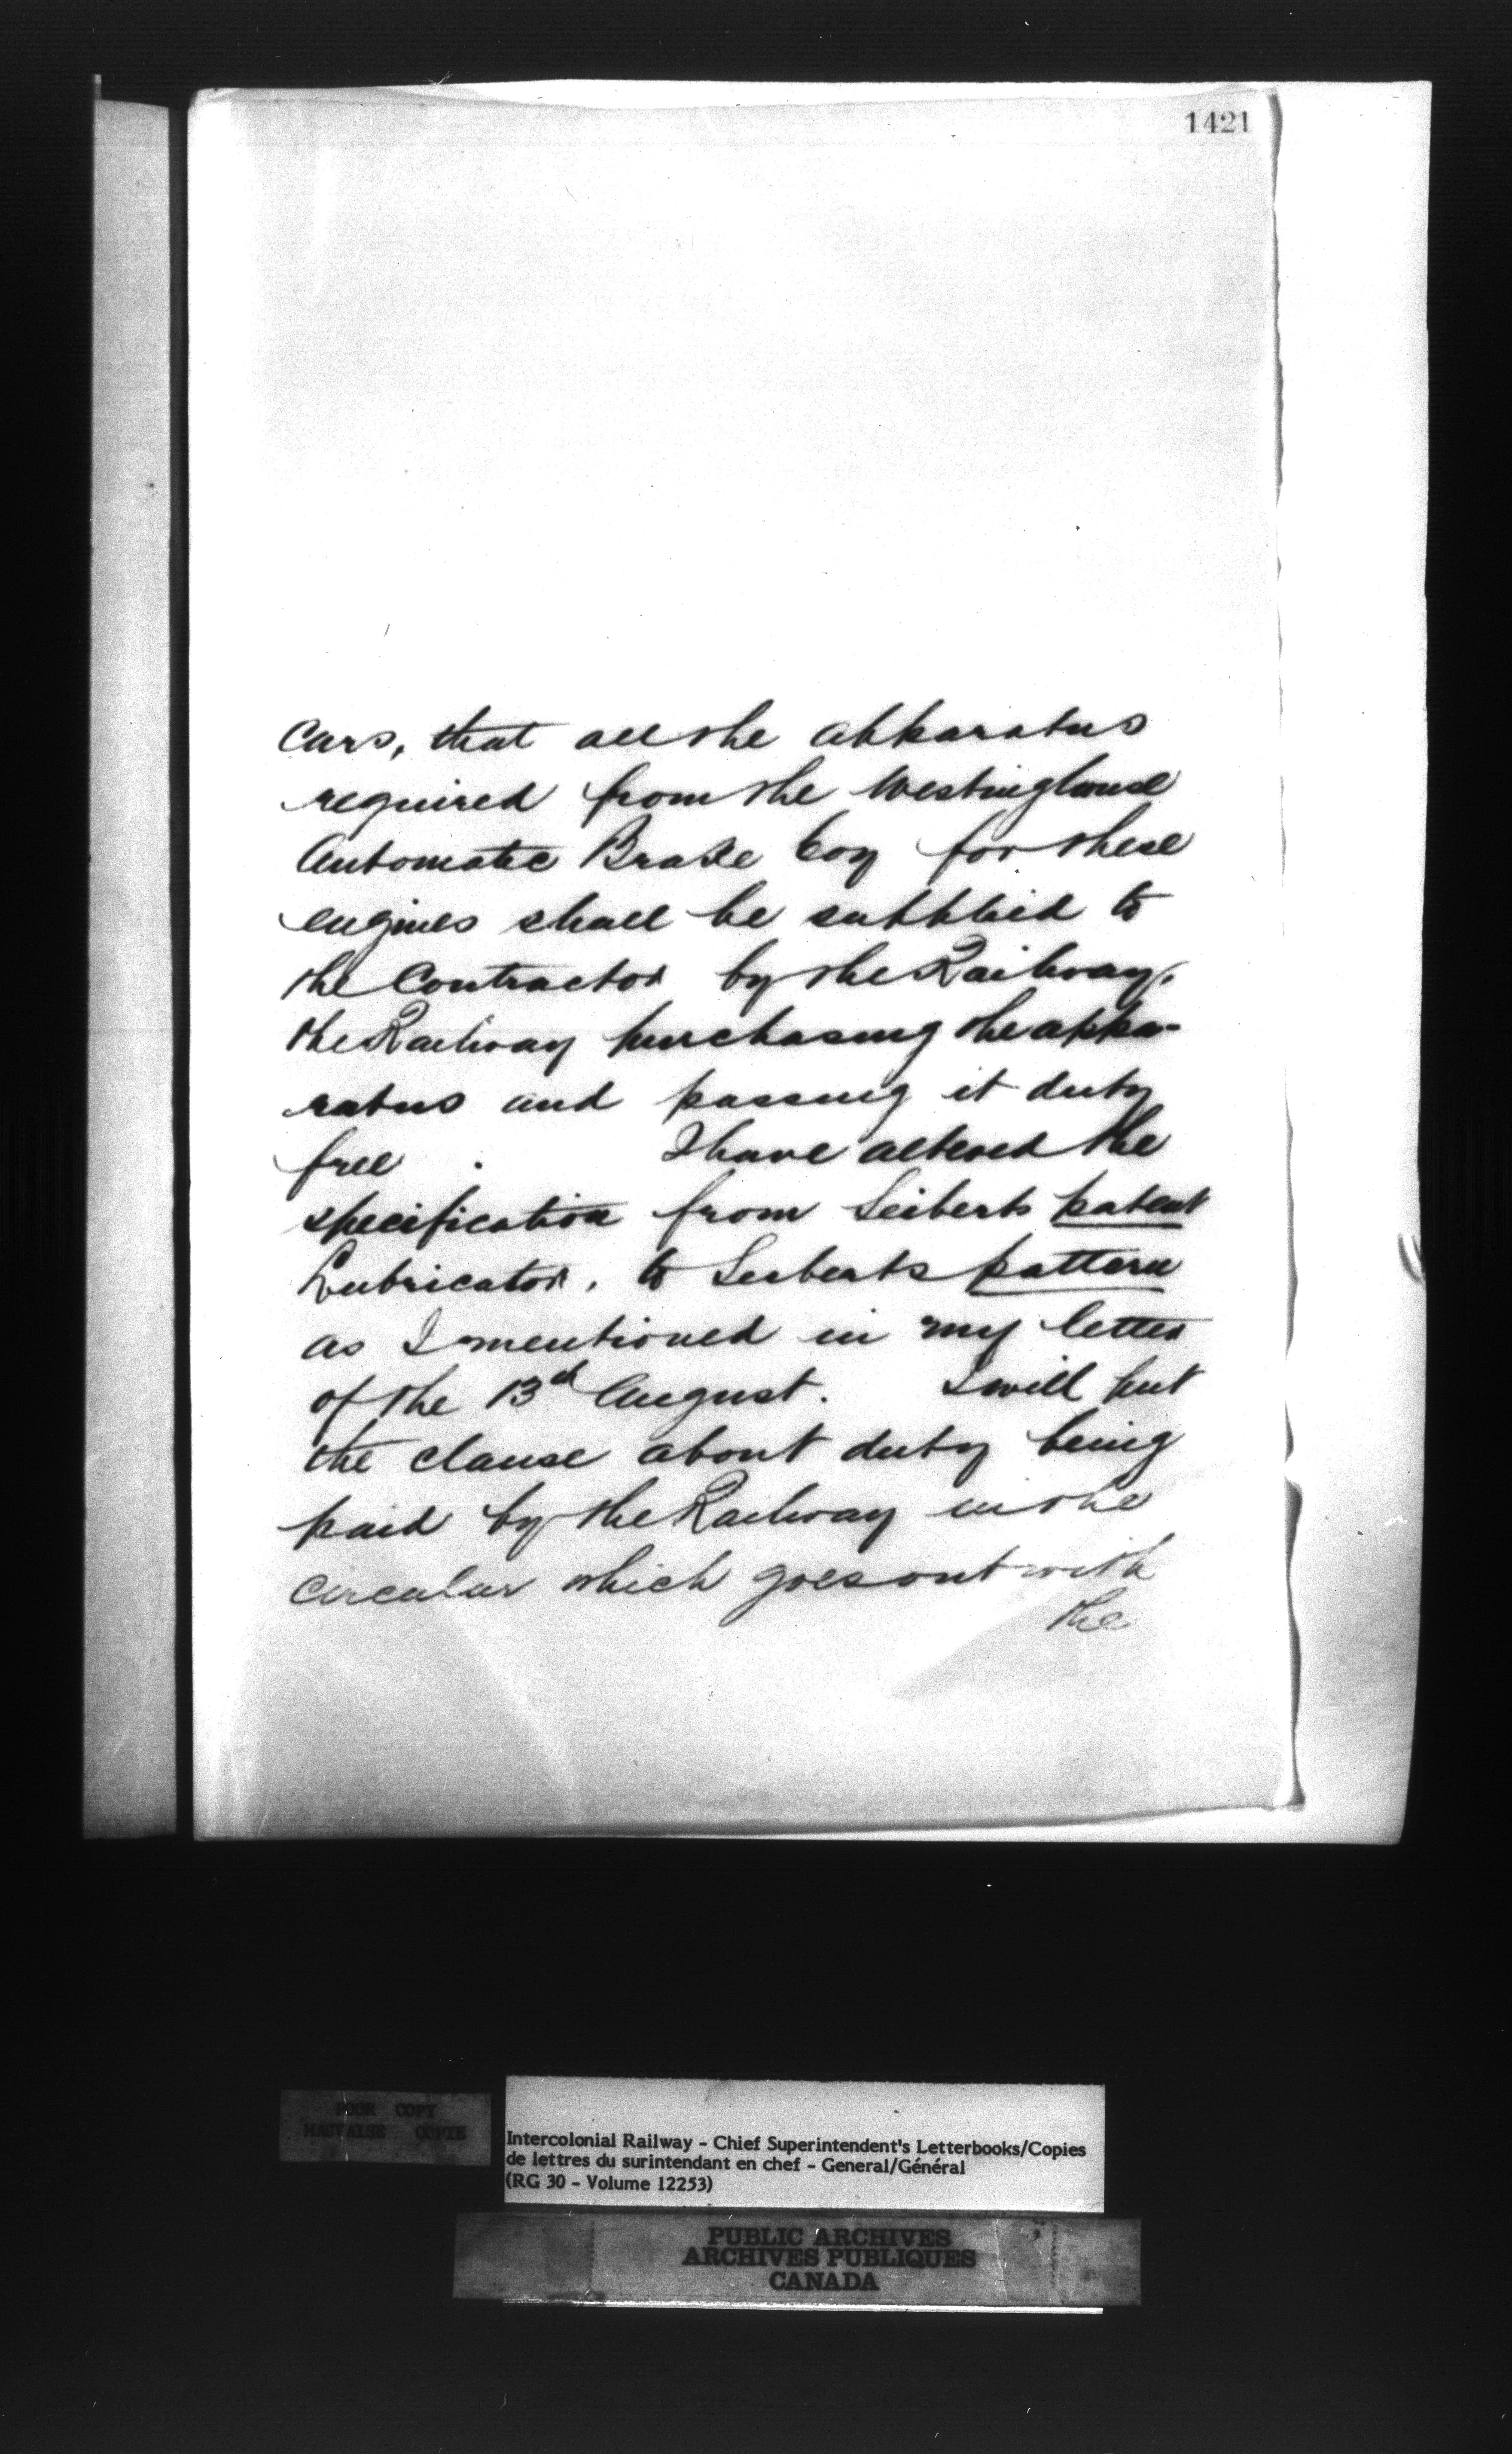 1421
Cars, that all the apparatus
required from the Westinghouse
Automatic Brake Coy for these
engines shall be supplied to
the Contractor by the Railway,
the Railway purchasing the appa-
ratus and passing it duty
free . I have altered the
specification from Seiberts patent
Lubricator, to Seiberts pattern
as I mentioned in my letter
of the 13th August. I will put
the clause about duty being
paid by the Railway in the
circular which goes out with
the
POOR COPY
MAUVAISE COPIE
Intercolonial Railway - Chief Superintendent's Letterbooks/Copies
de lettres du surintendant en chef - General/Général
(RG 30 - Volume 12253)
PUBLIC ARCHIVES
ARCHIVES PUBLIQUES
CANADA